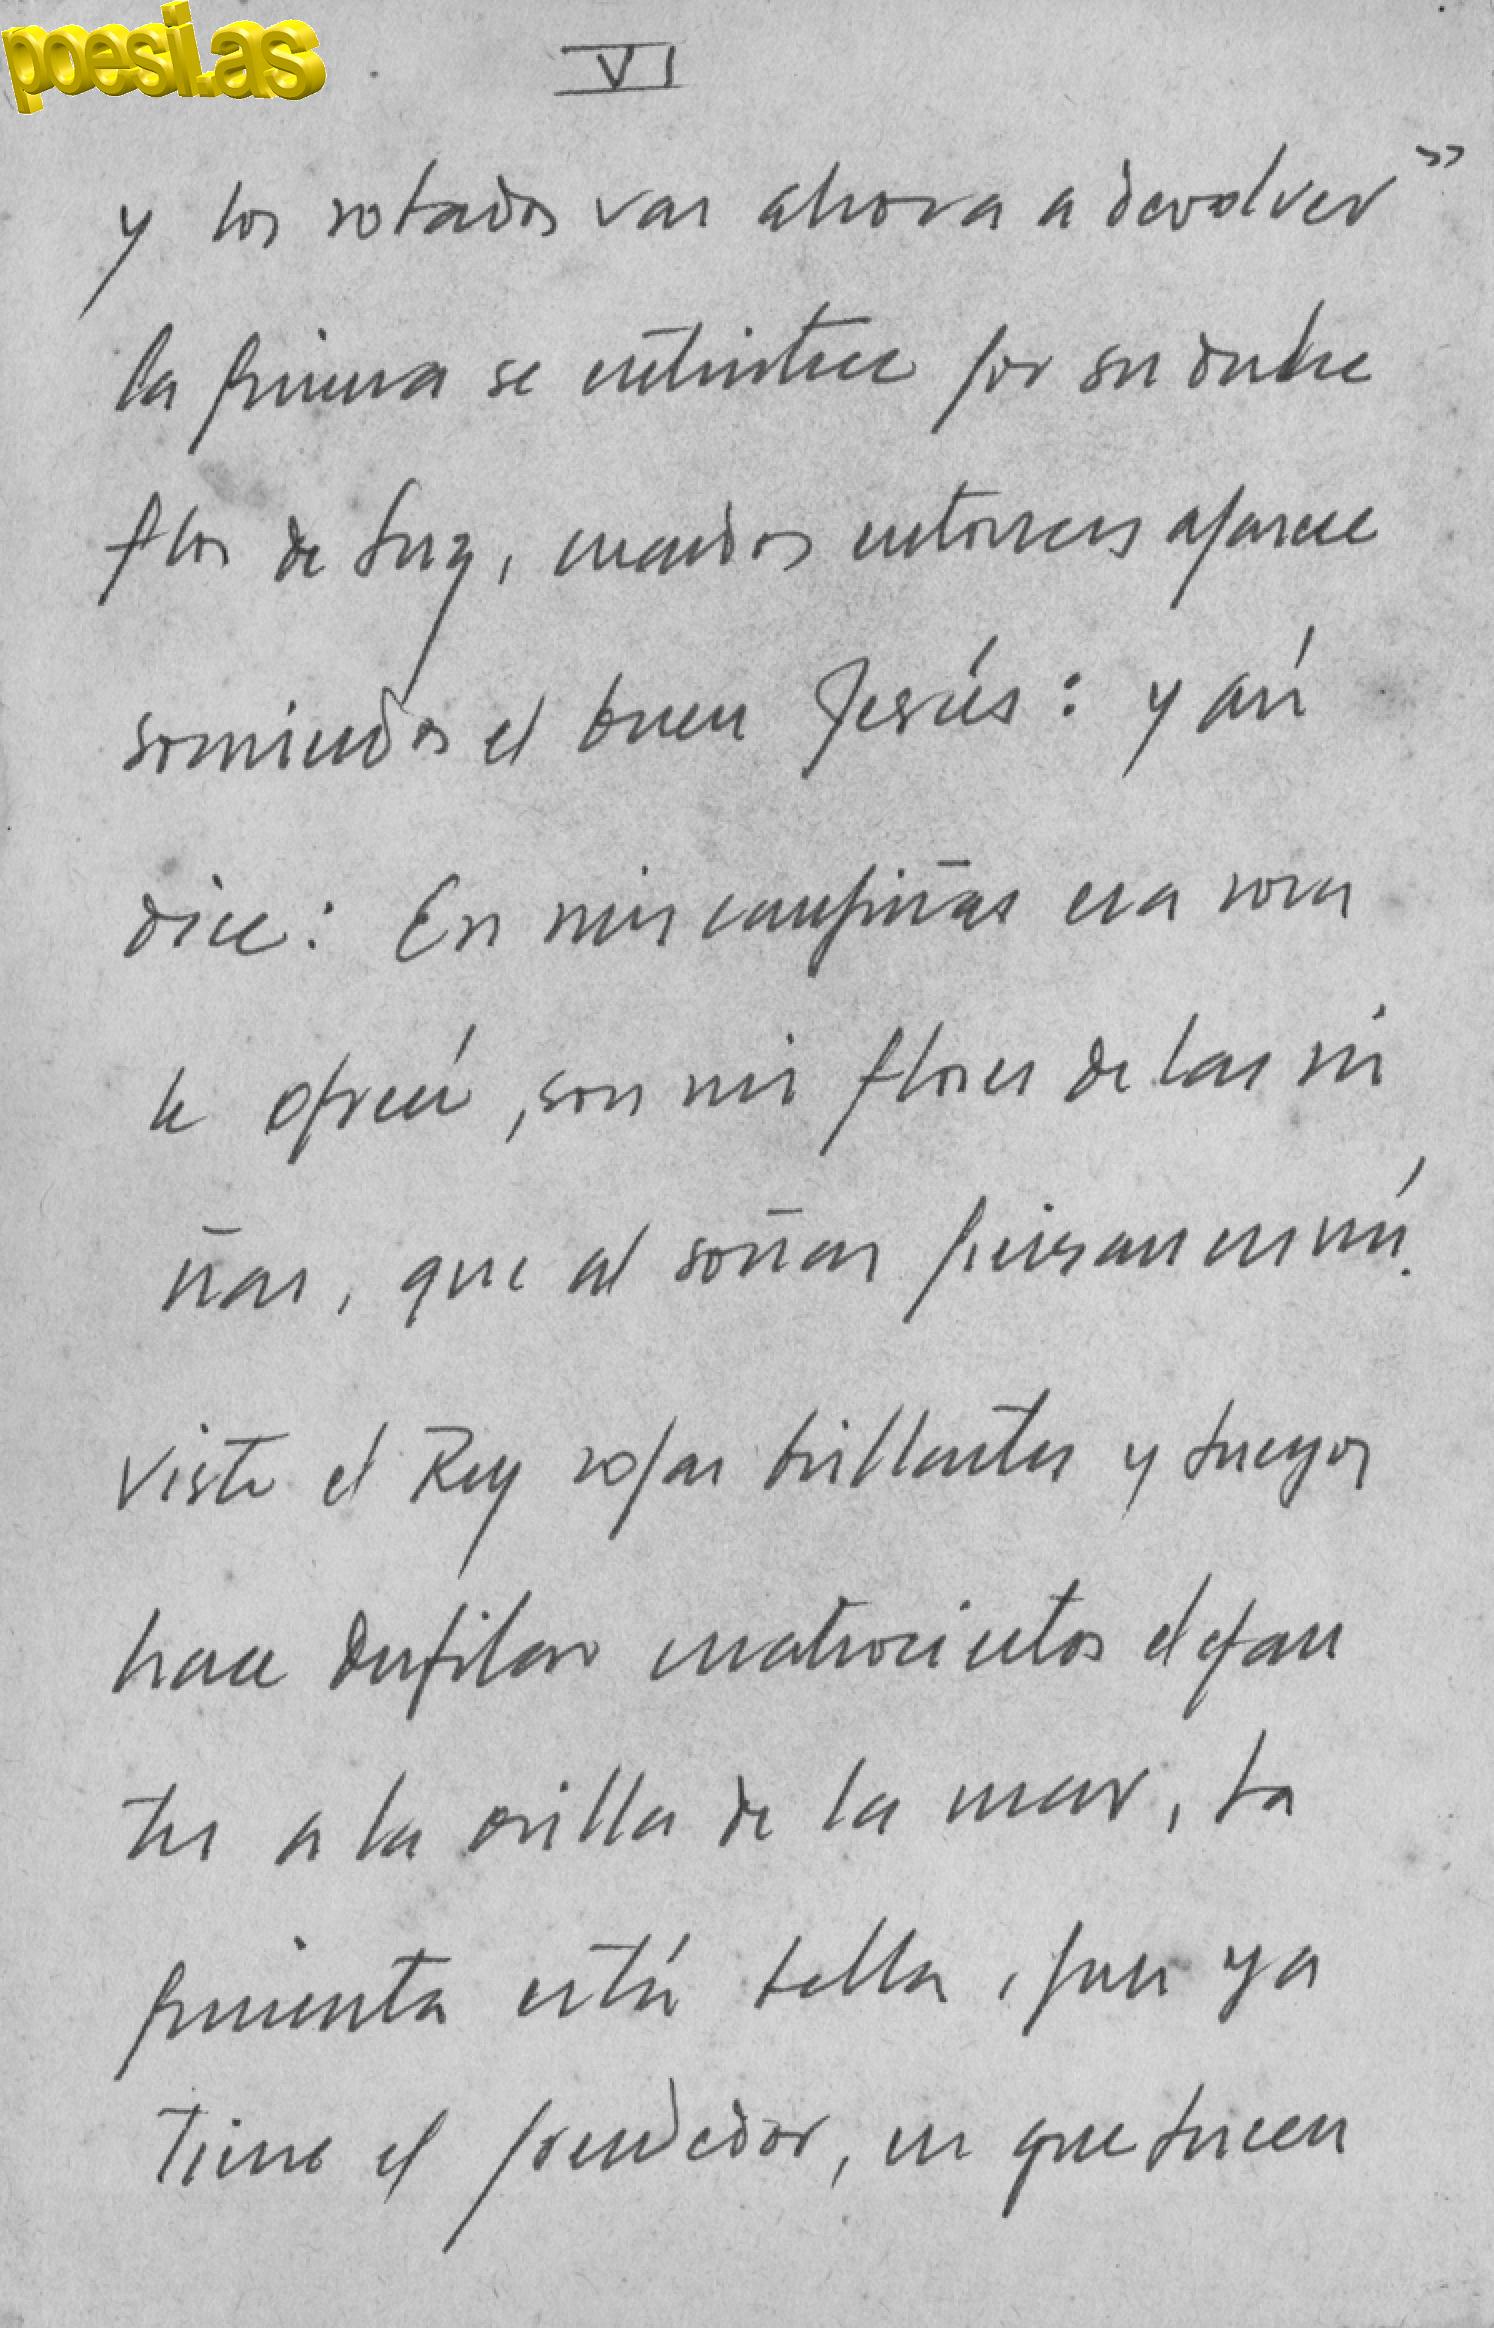 poesi.as
VI
y los robados van ahora a devolver"
la princesa se entristece por su dulce
flor de luz, cuando entonces aparece
sonriendo el buen Jesús: y así
dice: En mis campiñas esa rosa
le ofrecí, son mis flores de las ni
ñas, que al soñar piensan en mí.
Viste el Rey ropas brillantes y luego
hace desfilar cuatrocientos elefan
tes a la orilla de la mar, la
princesita está bella, pues ya
tiene el prendedor, en que lucen